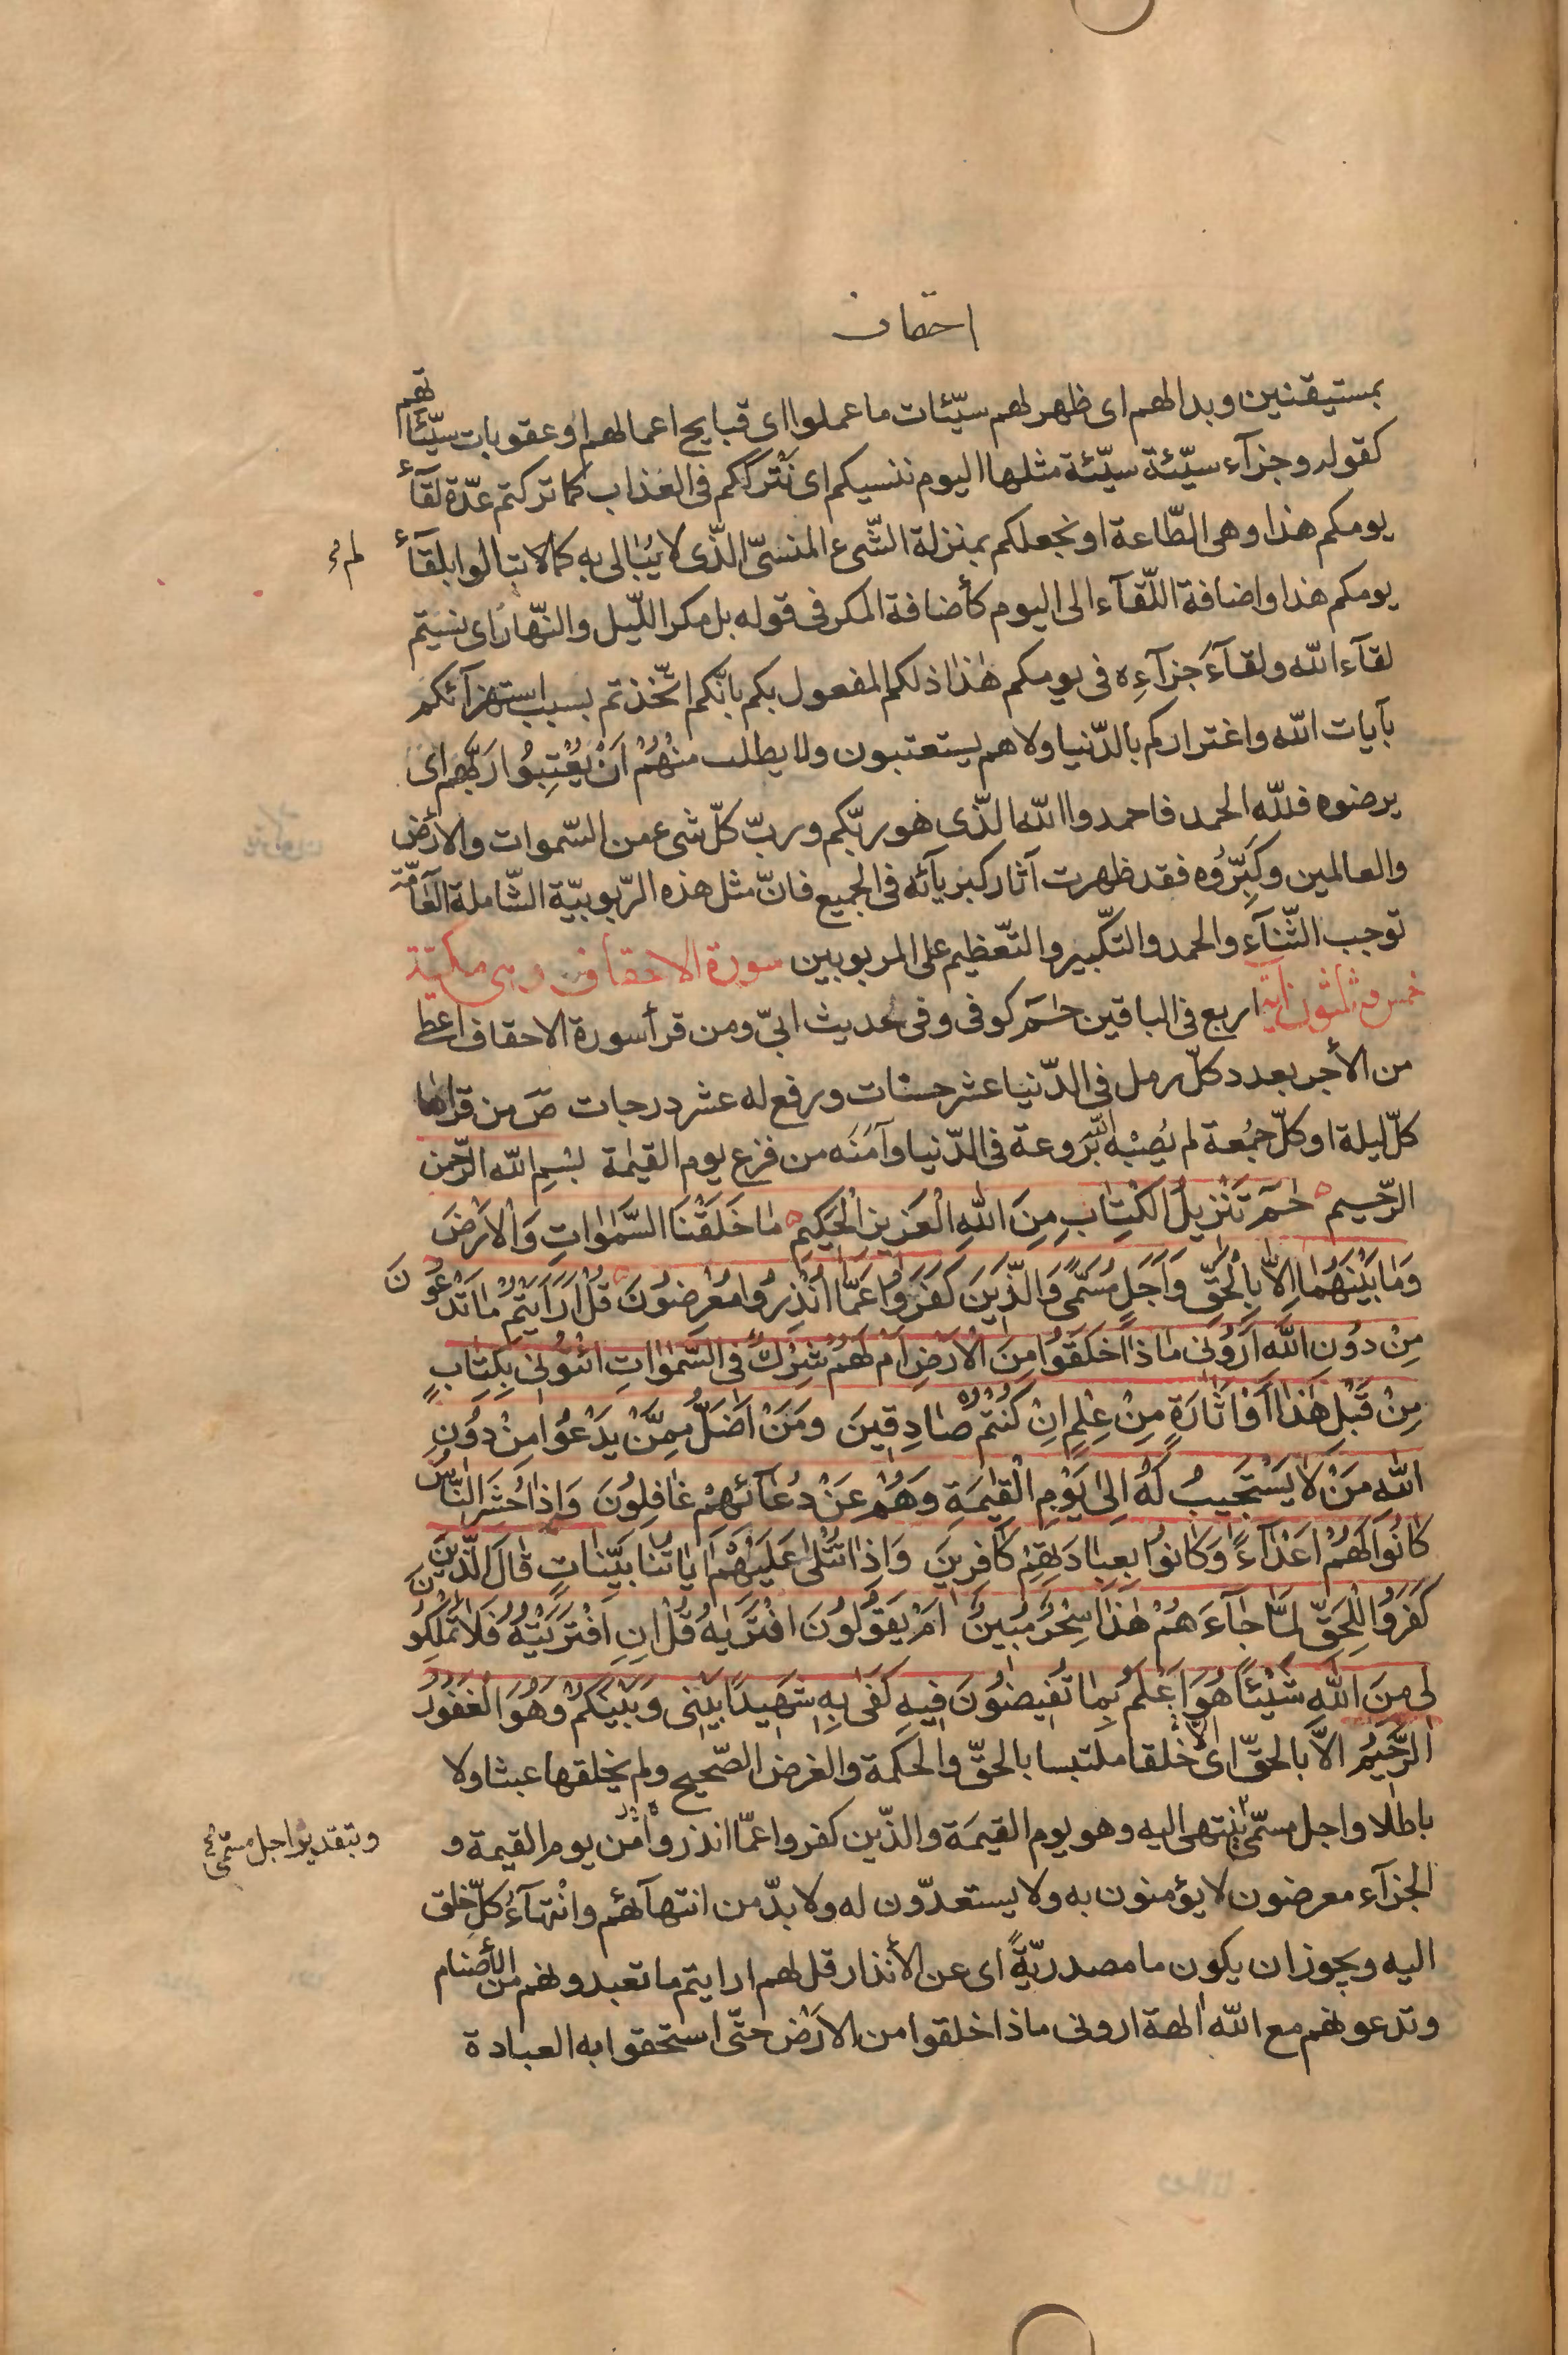 احقاف
بمستيقنين وبدا لهم اى ظهر لهم سيّئات ما عملوا اى قبايح اعمالهم او عقوبات سيّئاتهم
كقوله وجزآء سيّئة سيّئة مثلها اليوم ننسيكم اى نَتْرُككم فى العَذاب كما تركتم عدّة لقآء
يومكم هذا وهى الطّاعة او نجعلكم بمنزلة الشّىء المنسىّ الذّى لا يُبالى به كما لا تبالوا بلقآء
لم
يومكم هذا واضافة اللّقآء الى اليوم كأضافة المكر فى قوله بل مكر اللّيل والنّهار اى نسيتم
لقآء الله ولقآءَ جزآءِه فى يومكم هٰذا ذلكم المفعول بكم بانّكم اتّخذتم بسبب استهزآئكم
بآيات الله واغتراركم بالدّنيا ولا هم يستعتبون ولا يطلب مِنْهُمْ اَنْ يُعْتِبُوا رَبّهم اى
يرضوه فلله الحمد فاحمدوا الله الذّى هو ربّكم وربّ كلّ شىء من السّموات والأرض
والعالمين وكَبِّرُوه فقد ظهرت آثار كبريآئه فى الجميع فانّ مثل هذه الرّبوبيّة الشّاملة العٰامّة
توجب الثّنآء والحمد والتكّبير والتّعظيم على المربوبين سورة الاحقاف وهى مكيّة
خمس وثلثون آية اربع فى الباقين حٰم كوفى وفى حديث ابىّ ومن قرأ سورة الاحقاف اعطى
من الأجر بعدد كلّ رمل فى الدّنيا عشر حسنات ورفع له عشر درجات صَ من قراها
كلّ ليلة او كلّ جمُعة لم يُصِبْه الله بَروعة فى الدّنيا وآمَنَه من فزع يوم القيٰمة بسْمِ الله الرّحمن
الرّحيم حٰم تَنْزيلُ الكِتٰابِ مِنَ اللهِ الْعَزيزِ الْحَكيمِ مٰا خَلَقْنَا السَّمٰوٰاتِ وَالْاَرْضَ
وَمٰا بَيْنَهُمٰا اِلاّٰ بِالْحَقِّ وَاَجَلٍ مُسَمًّى وَالَّذينَ كَفَرُوا عَمّٰا اُنْذِرُوا مُعْرِضُونَ قُلْ اَرَاَيْتُمْ مٰا تَدْعُونَ
مِنْ دُونِ اللهِ اَرُونى مٰاذٰا خَلَقُوا مِنَ الْاَرْضِ اَمْ لَهُمْ شِرْكٌ فى السَّمٰوٰاتِ ائْتُونى بِكِتٰابٍ
مِنْ قَبْلِ هٰذٰا اَوْ اَثٰارَةٍ مِنْ عِلْمٍ اِنْ كُنْتُمْ صٰادِقينَ وَمَنْ اَضَلُّ مِمَّنْ يَدْعُوا مِنْ دُونِ
اللهِ مَنْ لٰا يَسْتَجيبُ لَهُ اِلىٰ يَوْمِ الْقِيٰمَةِ وَهُمْ عَنْ دُعٰآئِهِمْ غٰافِلُونَ وَاِذٰا حُشِرَ النّٰاسُ
كٰانُوا لَهُمْ اَعْدٰآءً وَكٰانُوا بِعِبٰادَتِهِمْ كٰافِرينَ وَاِذٰا تُتْلىٰ عَلَيْهِمْ اٰيٰاتُنٰا بَيِّنٰاتٍ قٰالَ الَّذينَ
كَفَرُوا لِلْحَقِّ لَمّٰا جٰآءَهُمْ هٰذٰا سِحْرٌ مُبينٌ اَمْ يَقُولُونَ افْتَرٰيهُ قُلْ اِنِ افْتَرَيْتُهُ فَلٰا تَمْلِكُونَ
لى مِنَ اللهِ شَيْئًا هُوَ اَعْلَمُ بِمٰا تُفيضُونَ فيهِ كَفىٰ بِهِ شَهيدًا بَيْنى وَبَيْنَكُمْ وَهُوَ الْغَفُورُ
الرَّحيمُ الاّ بالحقّ اى الاّ خلقا ملتبسا بالحقّ والحكمة والغرض الصّحيح ولم يخلقها عبثا ولا
باطلا واجل مسمّى ينتهى اليه وهو يوم القيمَة والذّين كفروا عمّا انذروا من يوم القيمة و
وبتقدير اجل مسمّى
الجزآء معرضون لا يؤمنون به ولا يستعدّون له ولا بدّ من انتهآئهم وانْتهآءُ كلّ خلق
اليه ويجوز ان يكون ما مصدريّةً اى عن الأنذار قل لهم ارايتم ما تعبدونهم من الأصنام
وتدعونهم مع الله الهة ارونى ماذا خلقوا من الارْض حتّى استحقوا به العبادة